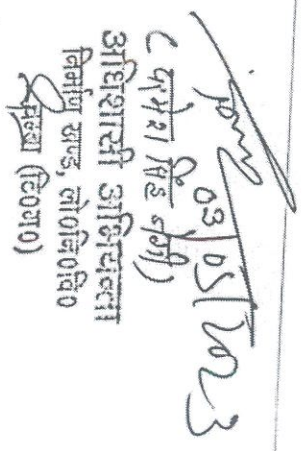 03/05/2023
( सिंह नेगी)
अधिशासी अभियन्ता
निर्माण खण्ड, लो०नि०वि०
(टि०ग०)